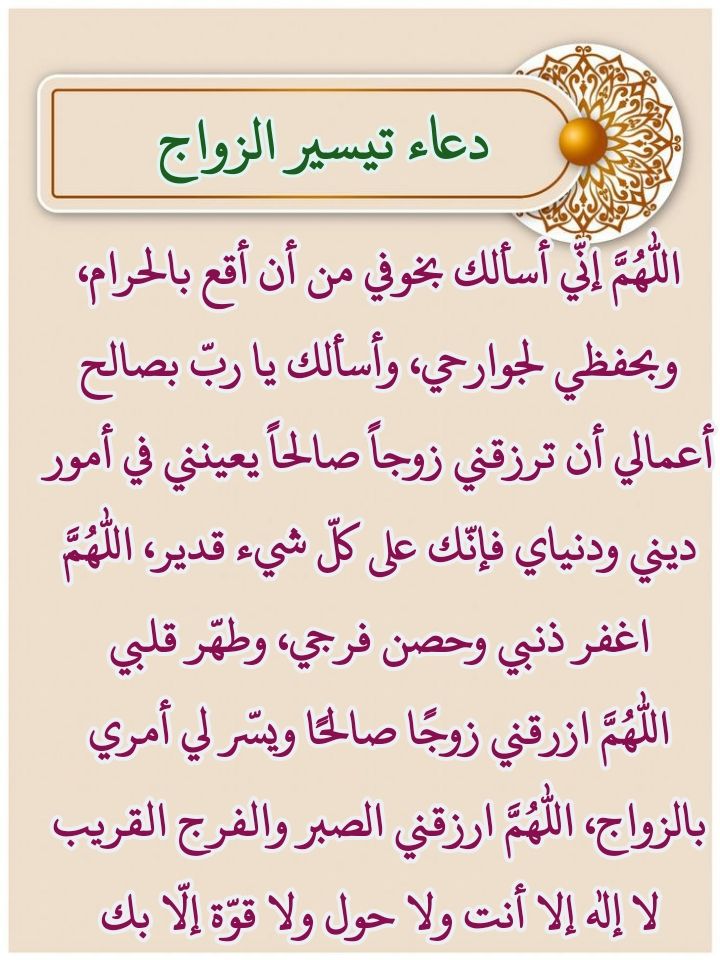 دعاء تيسير الزواج
اللّٰهُمَّ إنّي أسألك بخوفي من أن أقع بالحرام،
وبحفظي لجوارحي، وأسألك يا ربّ بصالح
أعمالي أن ترزقني زوجاً صالحاً يعينني في أمور
ديني ودنياي فإنّك على كلّ شيء قدير، اللّٰهُمَّ
اغفر ذنبي وحصن فرجي، وطهّر قلبي
اللّٰهُمَّ ازرقني زوجًا صالحًا ويسّر لي أمري
بالزواج، اللّٰهُمَّ ارزقني الصبر والفرج القريب
لا إلٰه إلا أنت ولا حول ولا قوّة إلّا بك